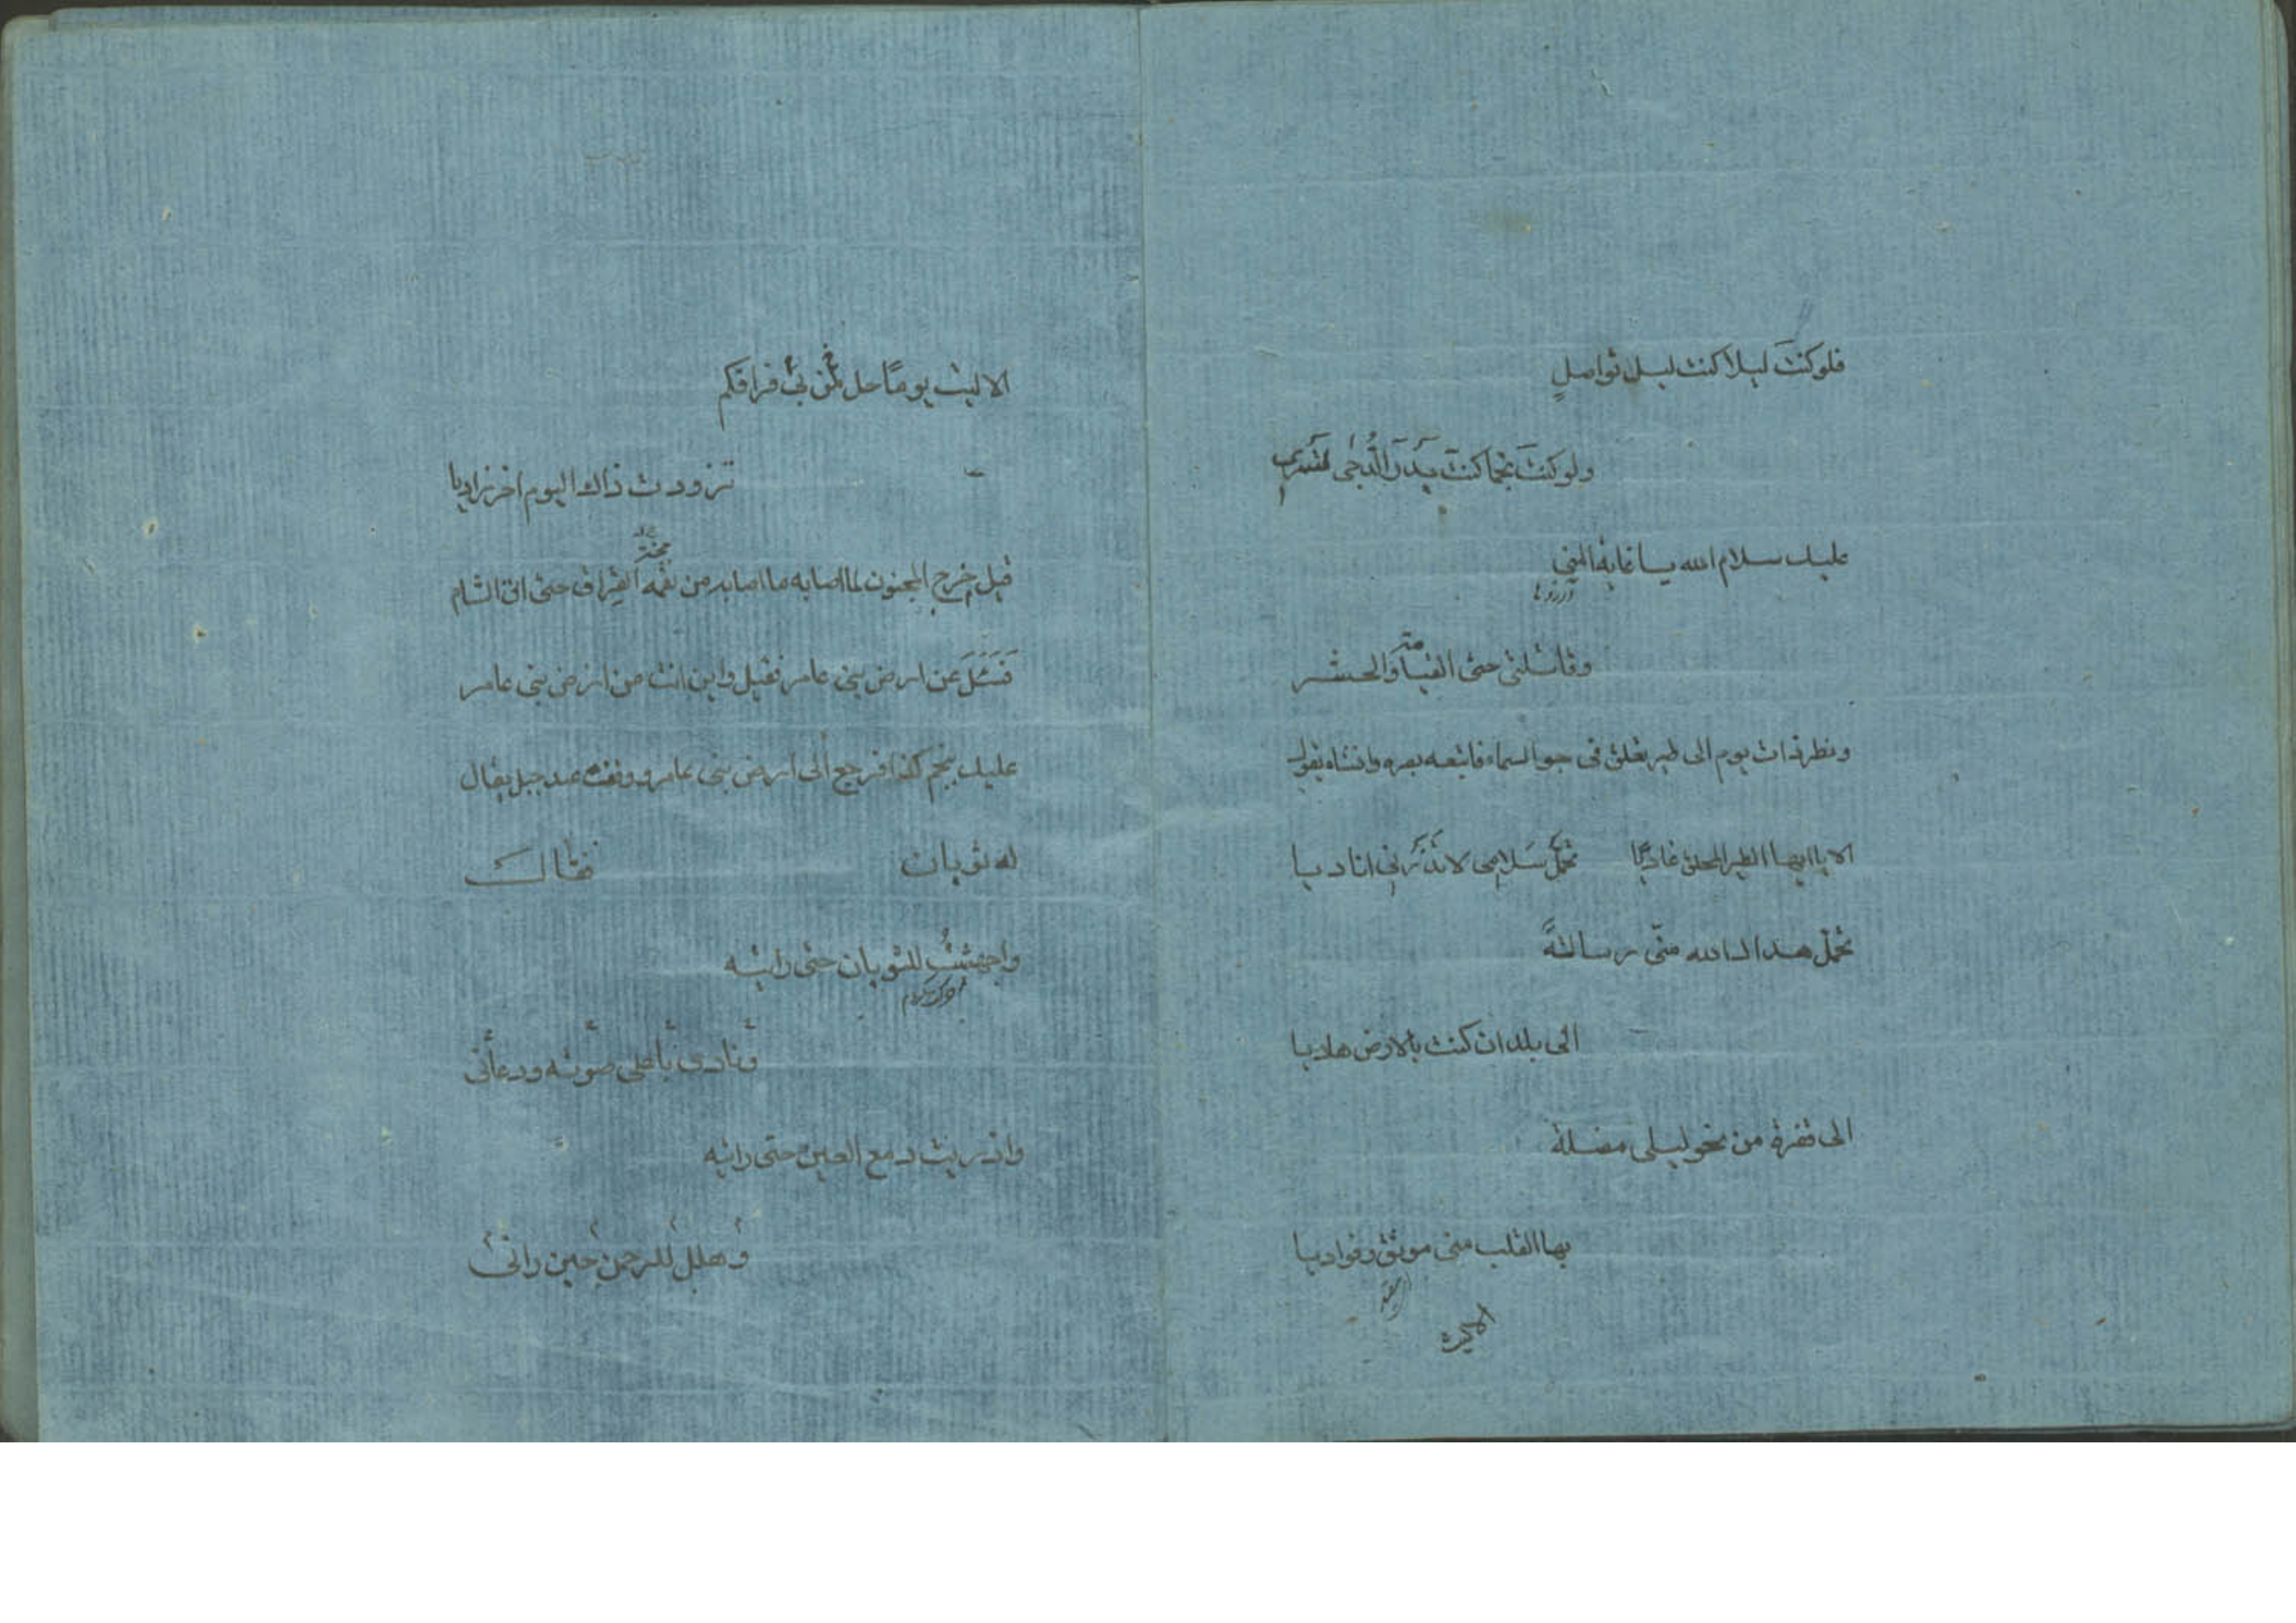 فلو كنتَ ليلا كنت ليل تواصلٍ
ولو كنتَ نجما كنتَ بَدرَ الدُّجٰى تسري
عليك سلام الله يا غاية المنى
آرزوها
وقاتلتى حتى القيامة والحشر
ونظر ذات يوم الى طير يعلق فى جو السماء فاتبعه بصره وانشاء يقول
الا يا ايها الطير المحلق غاديًا تحمّل سَلامِى لا تذَرنِي اناديا
تحمل هداك الله منّى رسالةً
الى بلد ان كنت بالارض هاديا
الى قفرة من نحو ليلى مضلة
بها القلب منى موثق وفواديا
الا ليت
الا ليت يومًا حل بي فراقكم
تزودت ذاك اليوم اخر زاديا
قيل خرج المجنون لما اصابه ما اصابه من نقمه الفِراق حتى اتى الشام
فَسَئَلَ عن ارض بنى عامر فقيل واين انت من ارض بنى عامر
عليك بنجم كذا فرجع الى ارض بنى عامر ووقف عند جبل يقال
له ثوبان فقال
واجهشتُ للثوبان حتى رايته
ونادى باعلى صوته ودعانى
واذريت دمع العين حتى رايته
وهلل للرحمن حين رانى